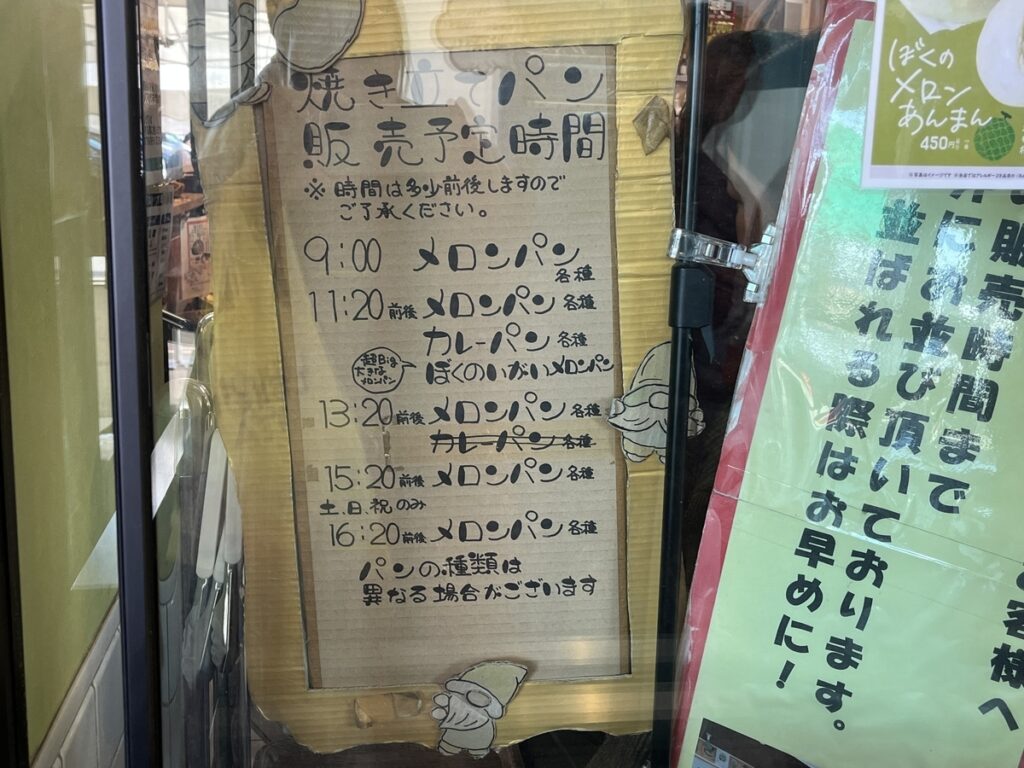 焼き立てパン
販売予定時間
※時間は多少前後しますので
ご了承ください。
9:00 メロンパン
各種
11:20前後 メロンパン各種
カレーパン各種
超目玉
大きな
メロンパン
ぼくのいがいメロンパン
13:20前後 メロンパン各種
カレーパン各種
15:20前後 メロンパン各種
土.日.祝のみ
16:20前後 メロンパン各種
パンの種類は
異なる場合がございます
ぼくの
メロン
あんまん
450円
お客様へ
販売時間まで
にお並び頂いております。
並ばれる際はお早めに!